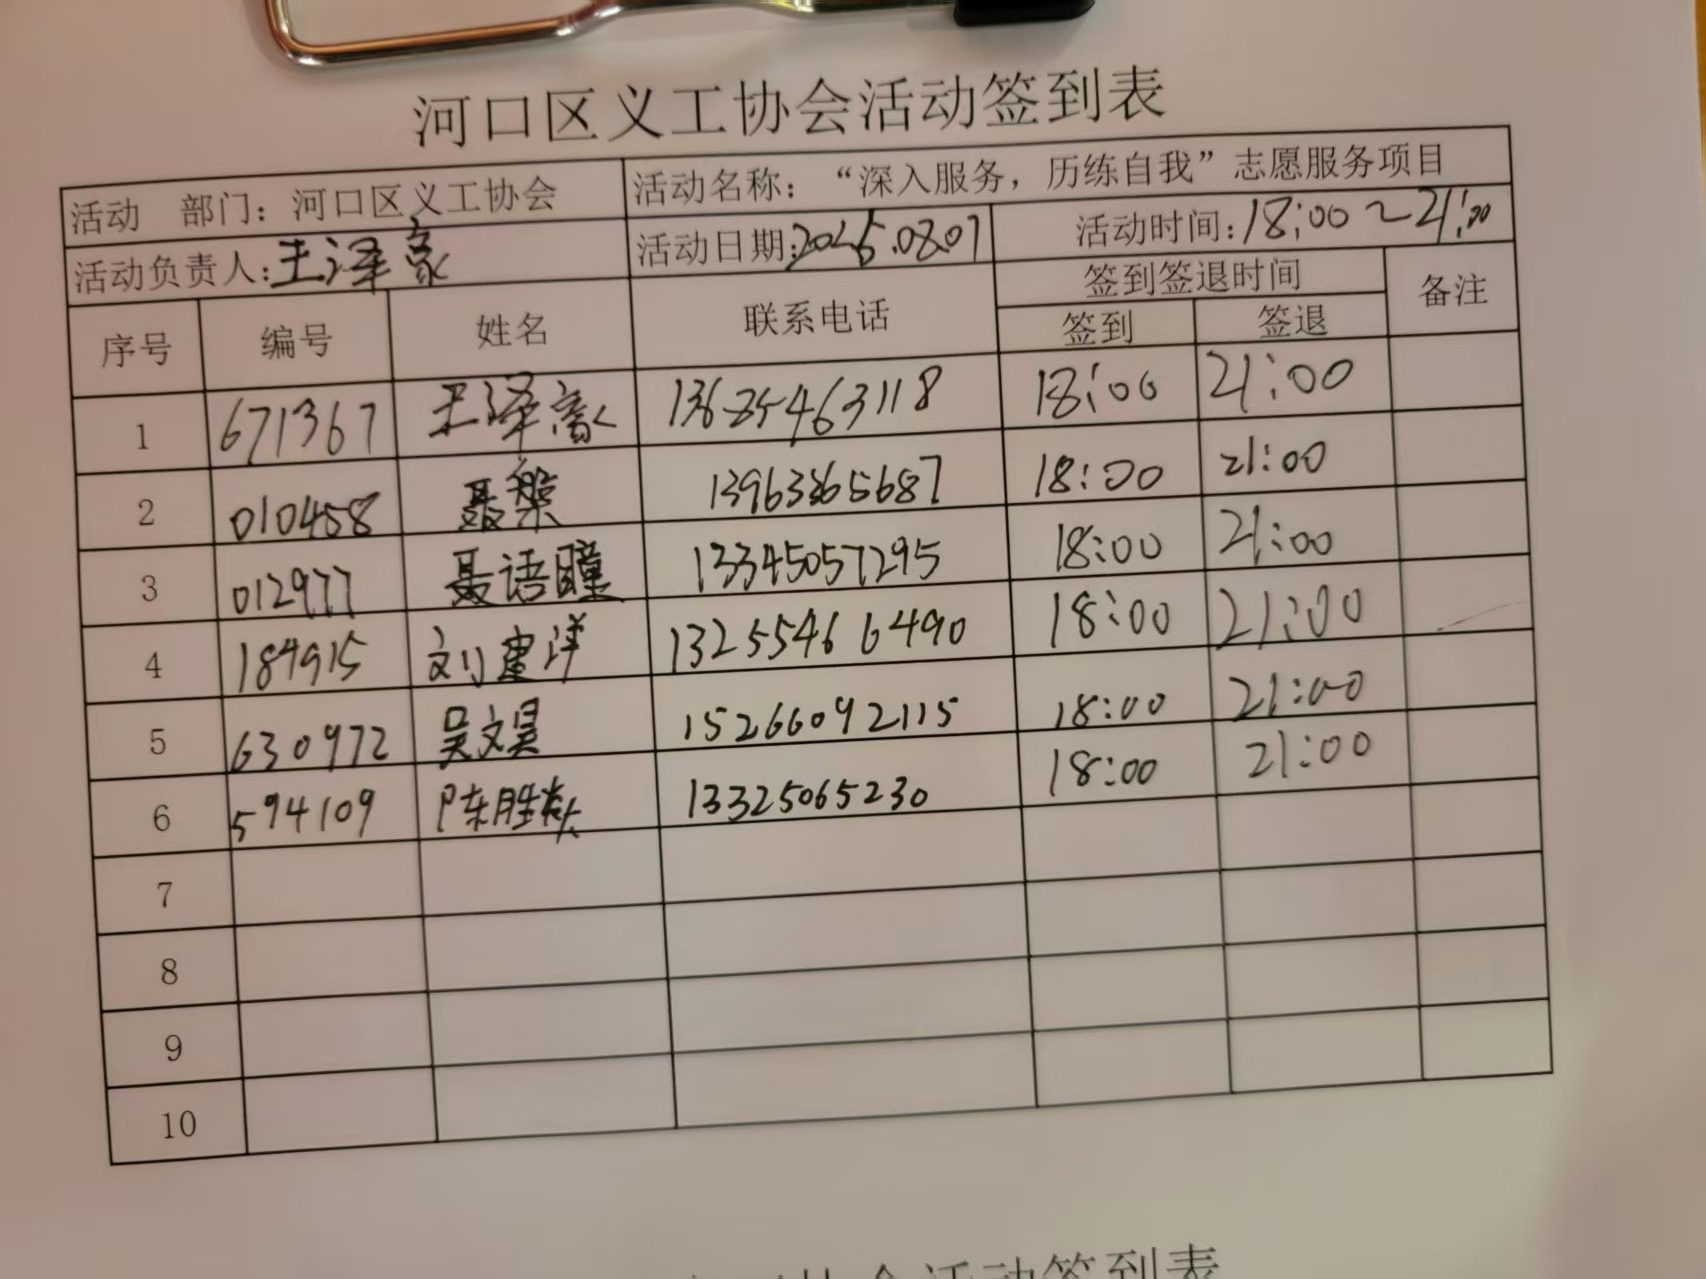 河口区义工协会活动签到表
活动 部门：河口区义工协会 活动名称：“深入服务，历练自我”志愿服务项目
活动负责人：王泽豪 活动日期：2025.08.07 活动时间：18:00～21:00
序号 编号 姓名 联系电话 签到签退时间 备注
签到 签退
1 671367 王泽豪 13625463118 18:00 21:00
2 010458 聂黎 13963365687 18:00 21:00
3 012977 聂语瞳 13345057295 18:00 21:00
4 184915 刘建洋 13255466490 18:00 21:00
5 630972 吴文昊 15266092115 18:00 21:00
6 594109 陈胜 13325065230 18:00 21:00
7
8
9
10
活动签到表